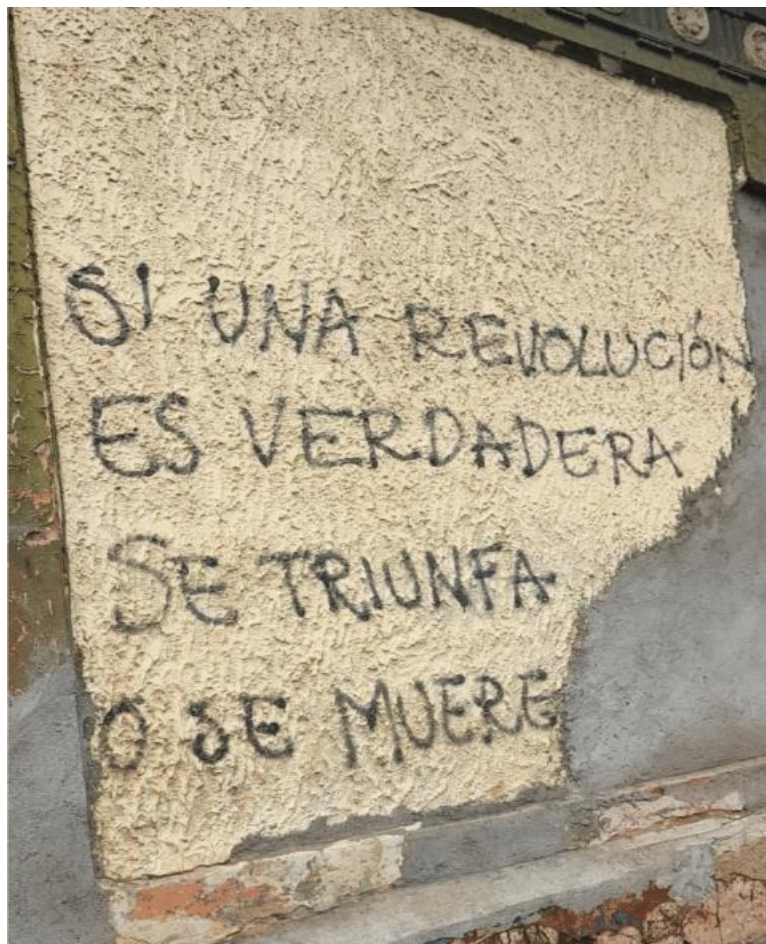 SI UNA REVOLUCIÓN
ES VERDADERA
SE TRIUNFA
O SE MUERE